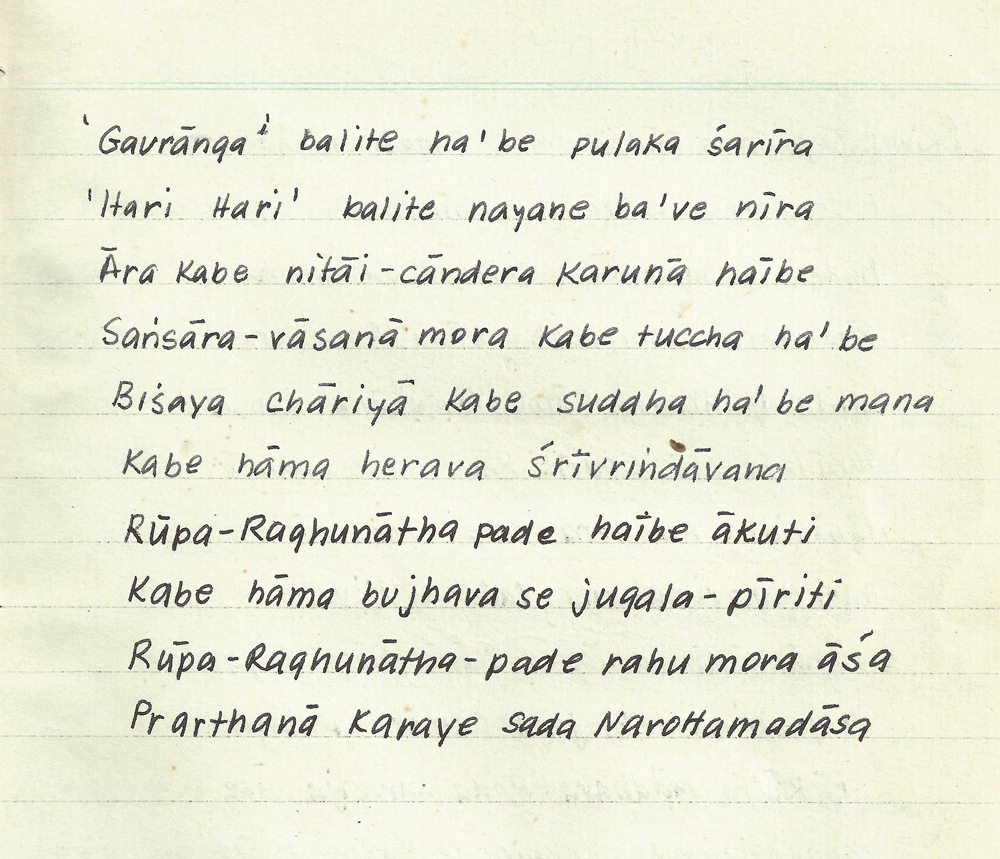 'Gaurānga' balite ha'be pulaka śarīra
'Hari Hari' balite nayane ba've nīra
Āra Kabe nitāi-cāndera Karunā haībe
Saṅsāra-vāsanā mora Kabe tuccha ha'be
Biśaya chāriyā Kabe suddha ha'be mana
Kabe hāma herava śrīvrindāvana
Rūpa-Raghunātha pade haībe ākuti
Kabe hāma bujhava se jugala-pīriti
Rūpa-Raghunātha-pade rahu mora āśa
Prarthanā Karaye sada Narottamadāsa